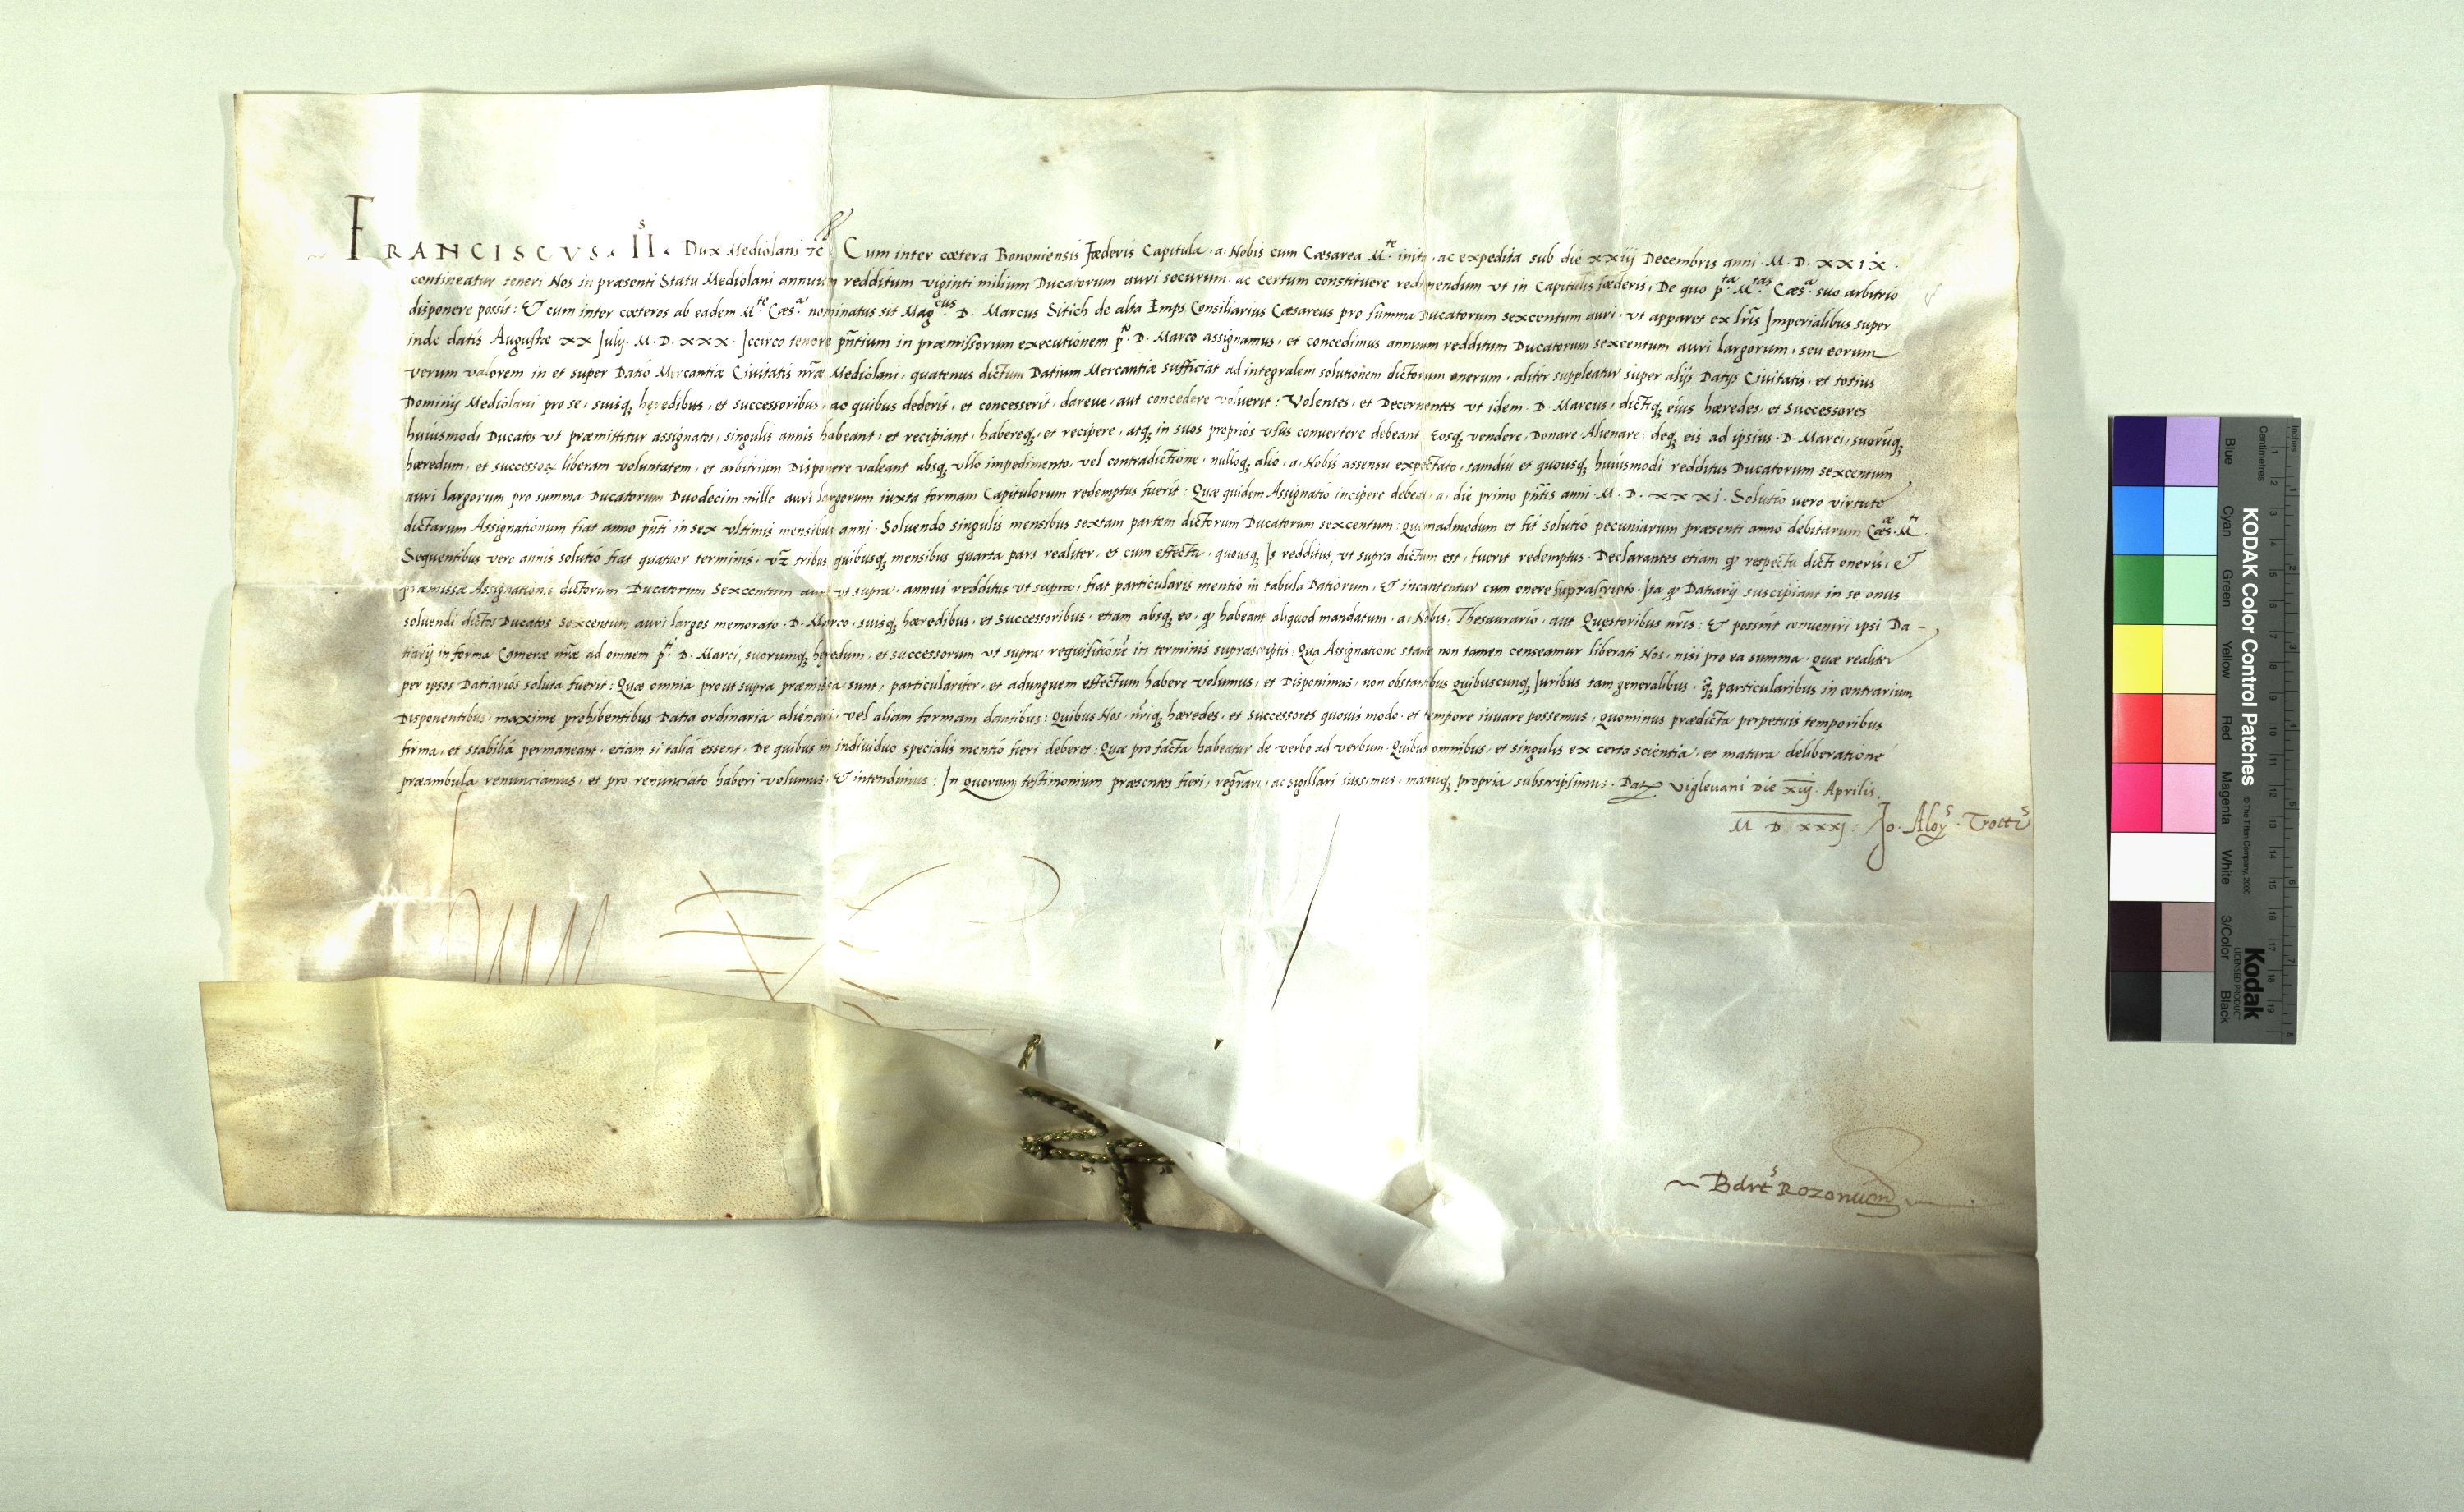 FRANCISCVS · II^s · Dux Mediolani &c^a Cum inter cœtera Bononiensis Fœderis Capitula · a · Nobis cum Cæsarea M^te · inita, ac expedita sub die xxiij Decembris anni · M · D · XXIX ·
contineatur teneri Nos in præsenti Statu Mediolani annuum redditum viginti milium Ducatorum auri securum · ac certum constituere redimendum vt in Capitulis fœderis, De quo p^ta · M^tas · Cæs^a · suo arbitrio
disponere possit : Et cum inter cœteros ab eadem M^te · Cæs^a · nominatus sit Mag^cus D · Marcus Sitich de alta Emps Consiliarius Cæsareus pro summa Ducatorum sexcentum auri · vt apparet ex lr̃is Imperialibus super
inde datis Augustæ XX July · M · D · XXX · Iccirco tenore pñtium in præmissorum executionem p^to · D · Marco assignamus, et concedimus annuum redditum Ducatorum sexcentum auri largorum, seu eorum
verum valorem in et super Datio Mercantiæ Ciuitatis nr̃æ Mediolani, quatenus dictum Datium Mercantiæ sufficiat ad integralem solutionem dictorum onerum, aliter suppleatur super alijs Datys Ciuitatis, et totius
Dominij Mediolani pro se, suisq; heredibus, et successoribus, ac quibus dederit, et concesserit, dareue, aut concedere voluerit : Volentes, et Decernentes vt idem · D · Marcus, dictiq; eius hæredes, et Successores
huiusmodi Ducatos vt præmittitur assignatos, singulis annis habeant, et recipiant, habereq; et recipere, atq; in suos proprios vsus conuertere debeant, Eosq; vendere, Donare, Alienare : deq; eis ad ipsius · D · Marci, suorũq;
hæredum, et successoꝝ liberam voluntatem, et arbitrium Disponere valeant absq; vllo impedimento, vel contradictione, nulloq; alio, a · Nobis assensu expectato, tamdiu et quousq; huiusmodi redditus Ducatorum sexcentum
auri largorum pro summa Ducatorum Duodecim mille auri largorum iuxta formam Capitulorum redemptus fuerit : Quæ quidem Assignatio incipere debeat, a · die primo pñtis anni · M · D · XXXI · Solutio vero virtute
dictarum Assignationum fiat anno pñti in sex vltimis mensibus anni · Soluendo singulis mensibus sextam partem dictorum Ducatorum sexcentum : quemadmodum et fit solutio pecuniarum præsenti anno debitarum Cæs^æ · M^ti ·
Sequentibus vero annis solutio fiat quatuor terminis, vz̃ tribus quibusq; mensibus quarta pars realiter, et cum effectu, quousq; Is redditus, vt supra dictum est, fuerit redemptus · Declarantes etiam ꝙ respectu dicti oneris, et
præmissæ Assignationis dictorum Ducatorum Sexcentum auri vt supra, annui redditus vt supra, fiat particularis mentio in tabula Datiorum, Et incantentur cum onere suprascripto · Ita ꝙ Datiarij suscipiant in se onus
soluendi dictos Ducatos sexcentum auri largos memorato · D · Marco, suisq; hæredibus, et successoribus, etiam absq; eo, ꝙ habeant aliquod mandatum · a · Nobis, Thesaurario, aut Quæstoribus nr̃is : Et possint conueniri ipsi Da-
tiarij in forma Cameræ nr̃æ ad omnem p^ti · D · Marci, suorumq; heredum, et successorum vt supra requisitionẽ in terminis suprascriptis : Qua Assignatione stante non tamen censeamur liberati Nos, nisi pro ea summa · quæ realiter
per ipsos Datiarios soluta fuerit : Quæ omnia prout supra præmissa sunt, particulariter, et adunguem effectum habere volumus, et Disponimus, non obstantibus quibuscunq; Iuribus tam generalibus, q̃ particularibus in contrarium
Disponentibus, maxime prohibentibus Datia ordinaria alienari, vel aliam formam dantibus : Quibus Nos, nr̃iq; hæredes, et successores quouis modo, et tempore iuuare possemus, quominus prædicta perpetuis temporibus
firma, et stabilia permaneant, etiam si talia essent, De quibus in indiuiduo specialis mentio fieri deberet : Quæ pro facta habeatur de verbo ad verbum · Quibus omnibus, et singulis ex certa scientia, et matura deliberatione
præambula renunciamus, et pro renunciato haberi volumus, Et intendimus : In quorum testimonium præsentes fieri, regr̃ari, ac sigillari iussimus, manuq; propria subscripsimus · Dat̃ Viglevani Die xiij · Aprilis ·
M D XXXj : Jo · Aloy^s · Trott^s
Bart^s Rozonus